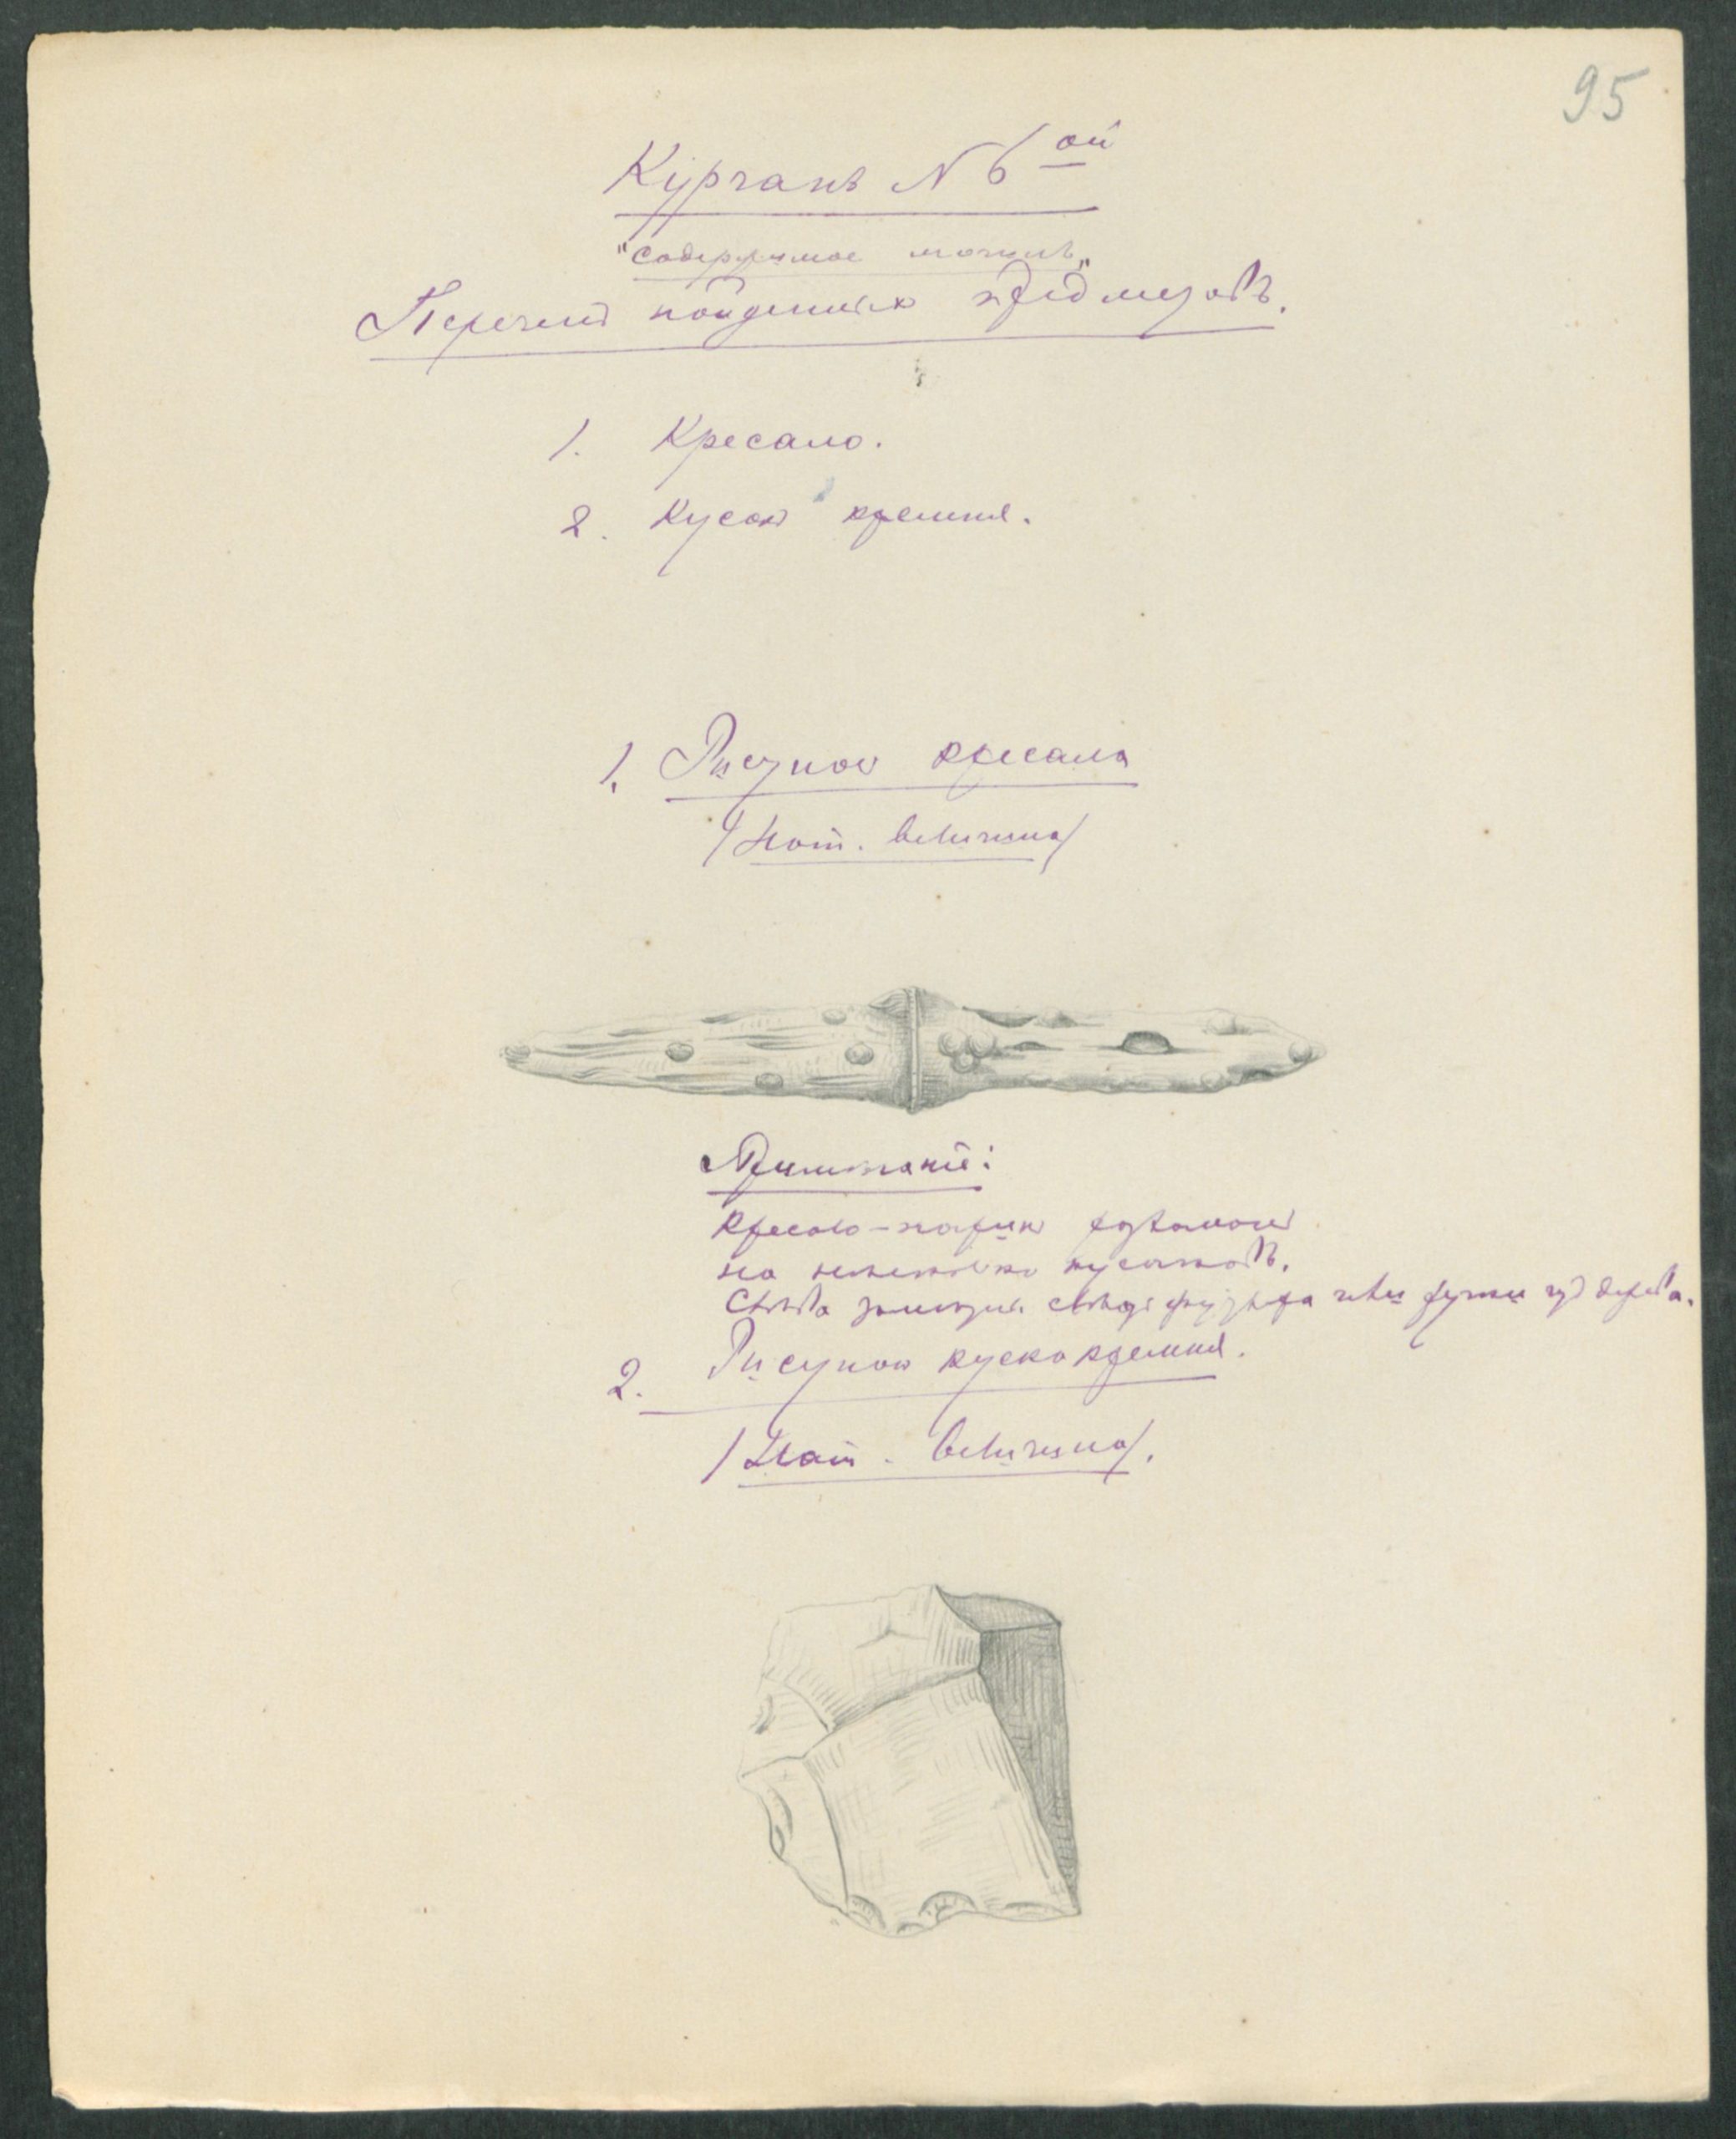 95
Курганъ N 6ой
"Содержимое могилъ"
Перечень найденныхъ предметовъ.
1. Кресало.
2. Кусокъ кремня.
1. Рисунокъ кресала
/Нат. величина/
Примѣчаніе:
Кресало
на нѣсколько кусочковъ.
Слѣва слѣды или ручки изъ дерева.
2. Рисунокъ куска кремня.
/Нат. величина/.